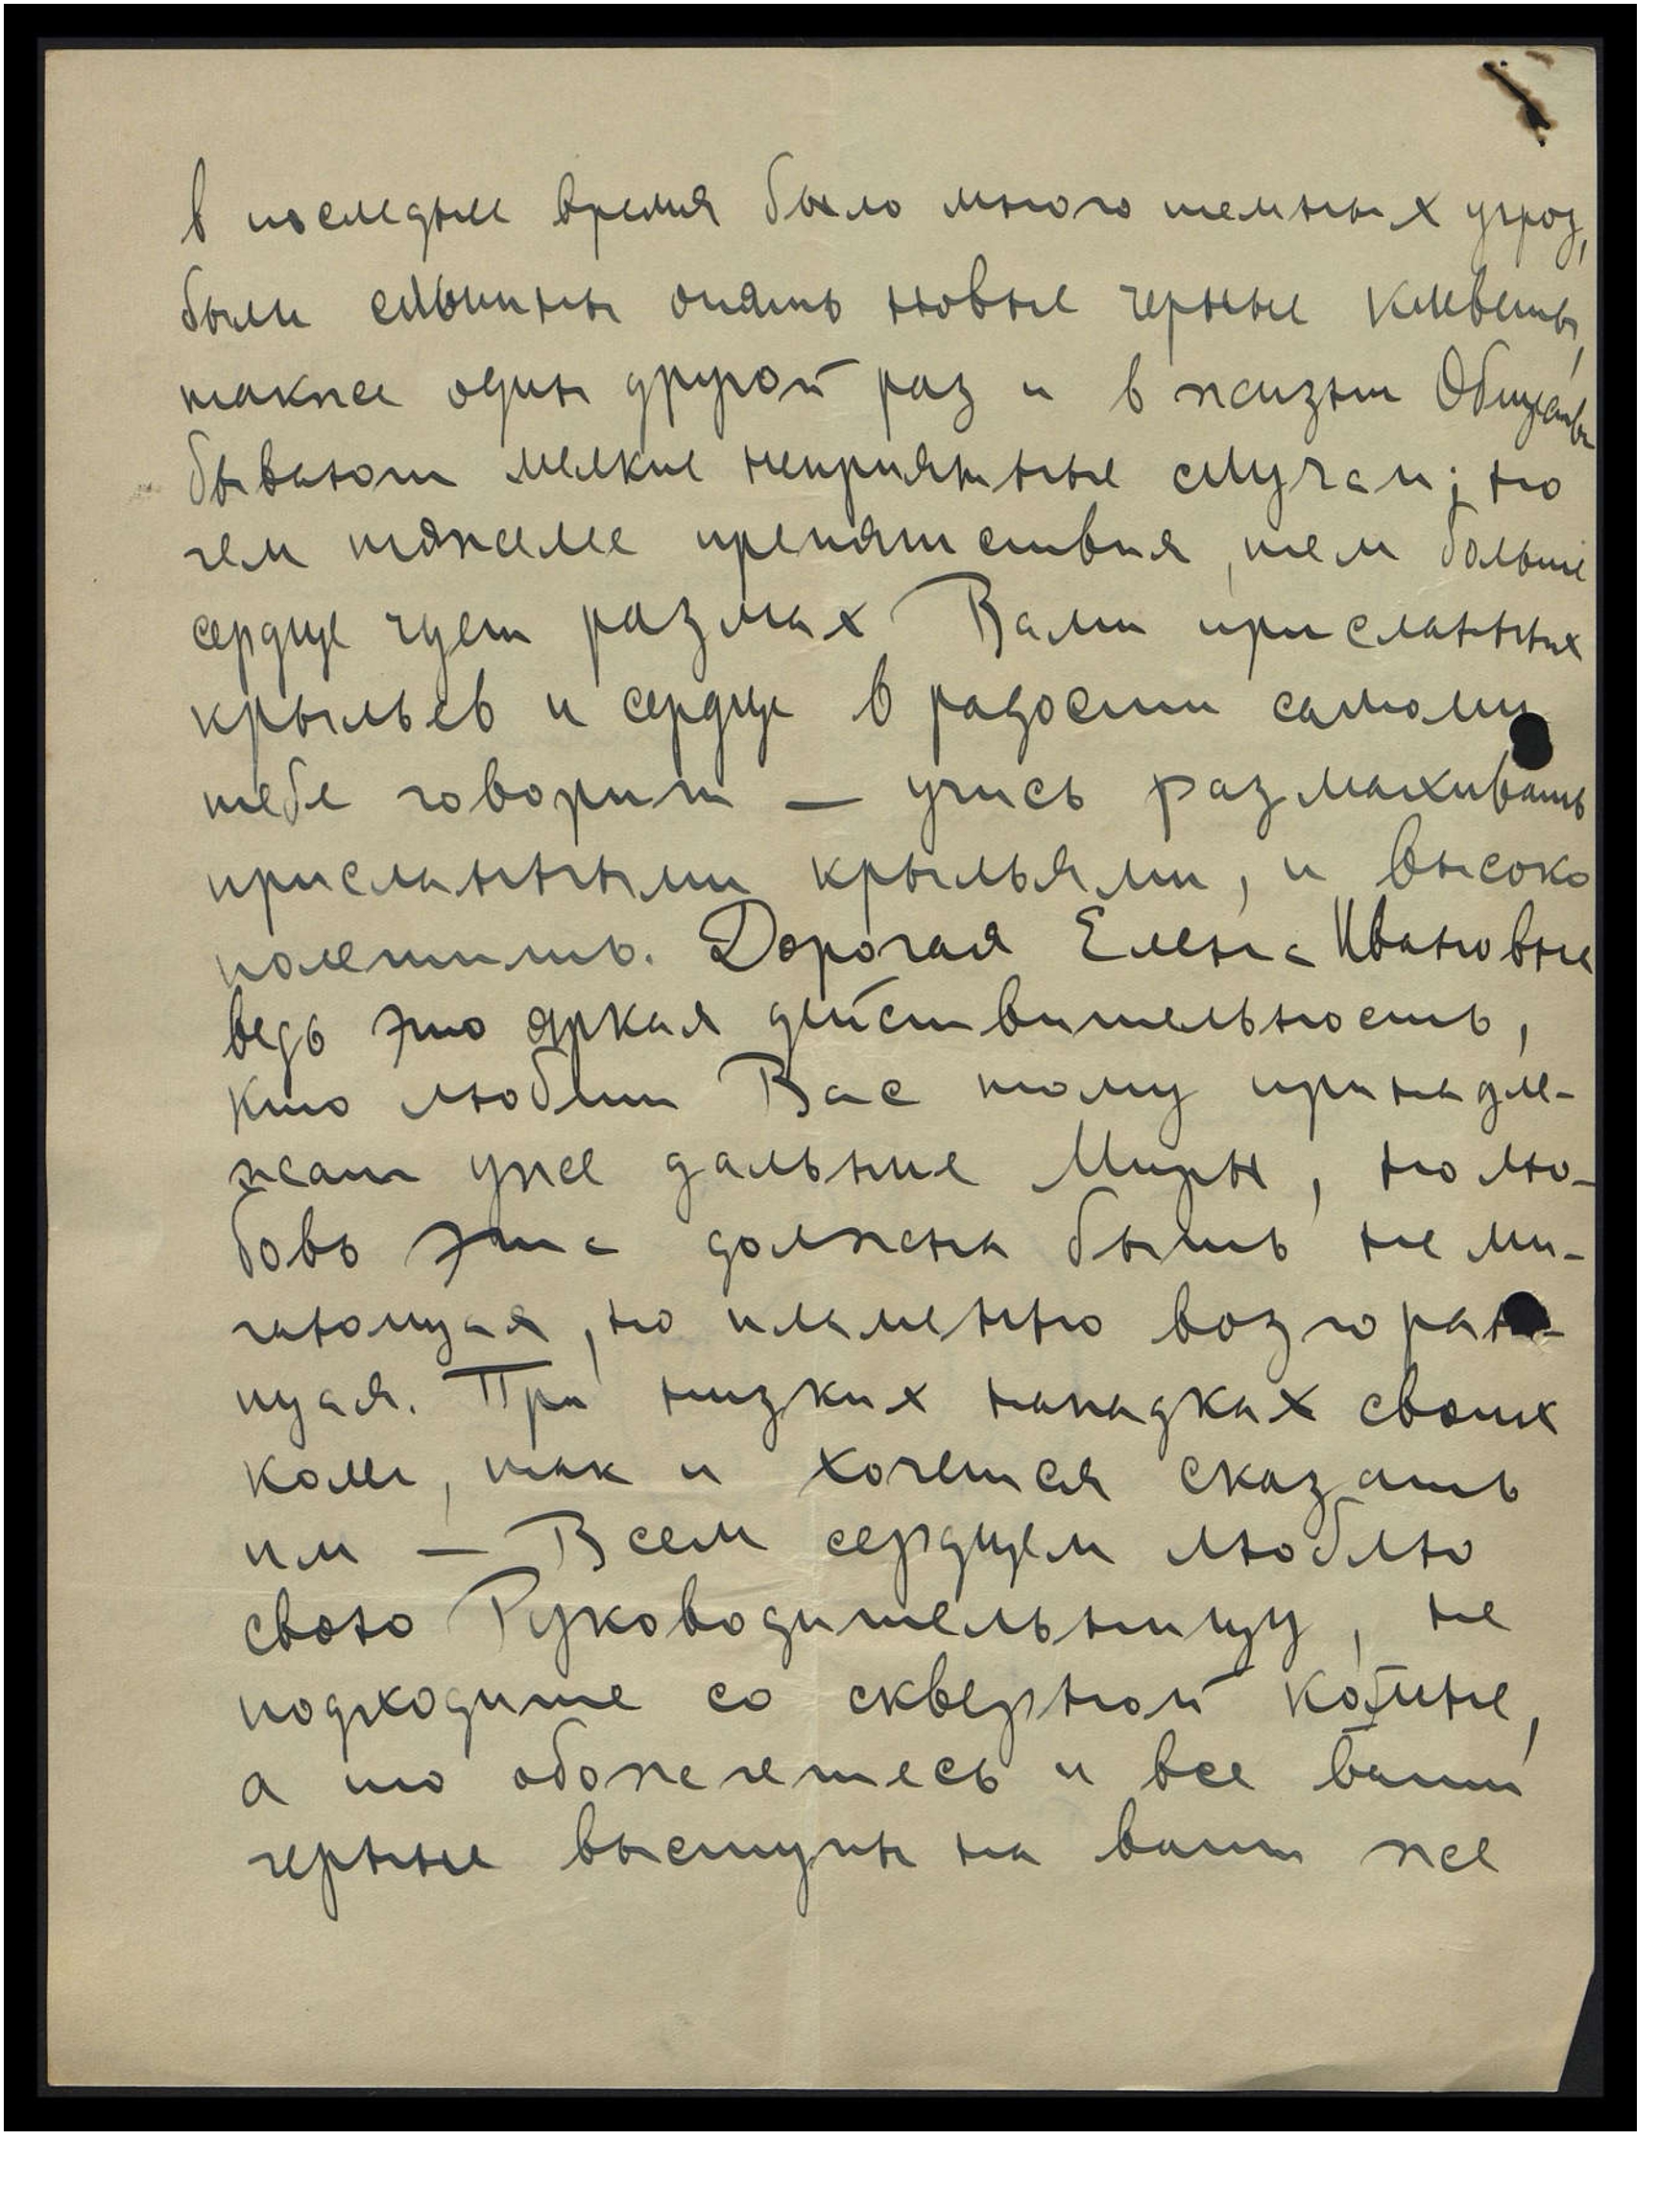 в последнее время было много темных угроз,
были слышны опять новые черные клеветы,
также один другой раз и в жизни Общества
бывают мелкие неприятные случаи; но
чем тяжелее препятствия, тем больше
сердце чует размах Вами присланных
крыльев и сердце в радости самому
тебе говорит — учись размахивать
присланными крыльями, и высоко
полетишь. Дорогая Елена Ивановна
ведь это яркая действительность,
кто любит Вас тому принадле-
жат уже дальние Миры, но лю-
бовь эта должна быть не ми-
гающая, но пламенно возгораю-
щая. При низких нападках своих
коллег, так и хочется сказать
им — Всем сердцем люблю
свою Руководительницу, не
подходите со скверной
а то обожгетесь и все ваши
черные выступы на ваши же